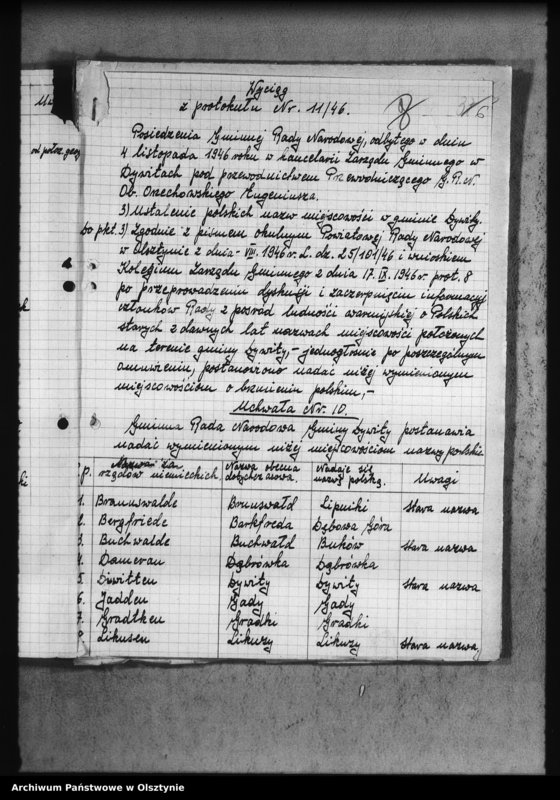 Wyciąg
z protokułu Nr. 11/46.
8
Posiedzenia Gminnej Rady Narodowej, odbytego w dniu
4 listopada 1946 roku w kancelarii Zarządu Gminnego w
Dywitach pod przewodnictwem Przewodniczącego G.R.N.
Ob. Orzechowskiego Eugeniusza.
3) Ustalenie polskich nazw miejscowości w gminie Dywity
Do pkt. 3) Zgodnie z pismem okulnym Powiatowej Rady Narodowej
w Olsztynie z dnia - VIII 1946 r. L. dz. 25/101/46 i wnioskiem
Kolegium Zarządu Gminnego z dnia 17.IX.1946 r. prot. 8
po przeprowadzeniu dyskusji i zaczerpnięciu informacyj
członków Rady z pośród ludności warmijskiej o Polskich
starych z dawnych lat nazwach miejscowości położonych
na terenie gminy Dywity, - jednogłośnie po poszczególnym
omówieniu, postanowiono nadać niżej wymienionym
miejscowościom o brzmieniu polskim, -
Uchwała Nr. 10.
Gminna Rada Narodowa Gminy Dywity postanawia
nadać wymienionym niżej miejscowościom nazwy polskie
l.p. Nazwa za rządów niemieckich. Nazwa obecna dotychczasowa. Nadaje się nazwę polską. Uwagi
1. Braunswalde Brunswałd Lipniki stara nazwa
2. Bergfriede Barkfreda Dębowa Góra
3. Buchwalde Buchwałd Buków stara nazwa
4. Damerau Dąbrówka Dąbrówka
5. Diwitten Dywity Dywity stara nazwa
6. Jadden Gady Gady
7. Gradtken Gradki Gradki
8. Likusen Likuzy Likuzy stara nazwa,
Archiwum Państwowe w Olsztynie